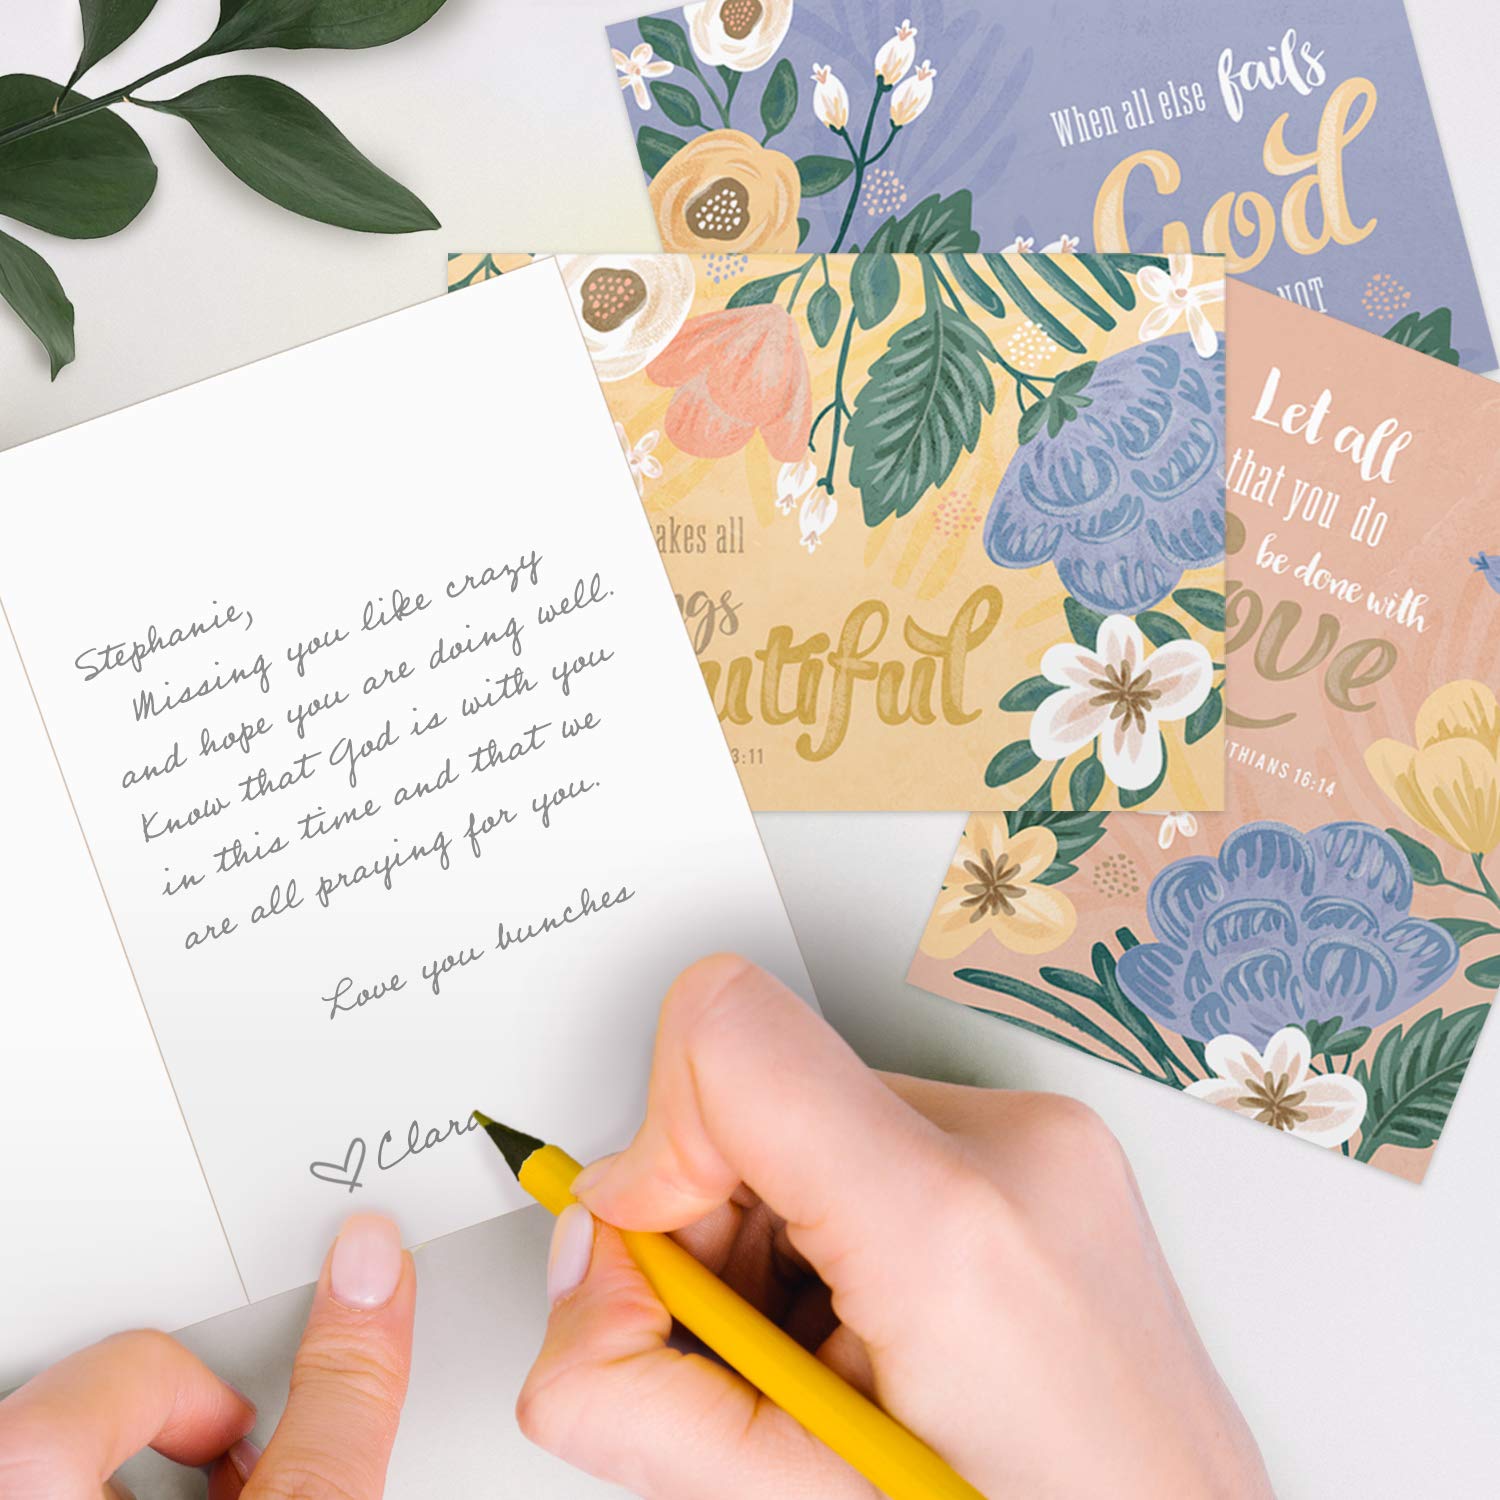 When all else fails
God
NOT
Let all
that you do
be done with
love
16:14
all
3:11
Stephanie,
Missing you like crazy
and hope you are doing well.
Know that God is with you
in this time and that we
are all praying for you.
Love you bunches
Clara